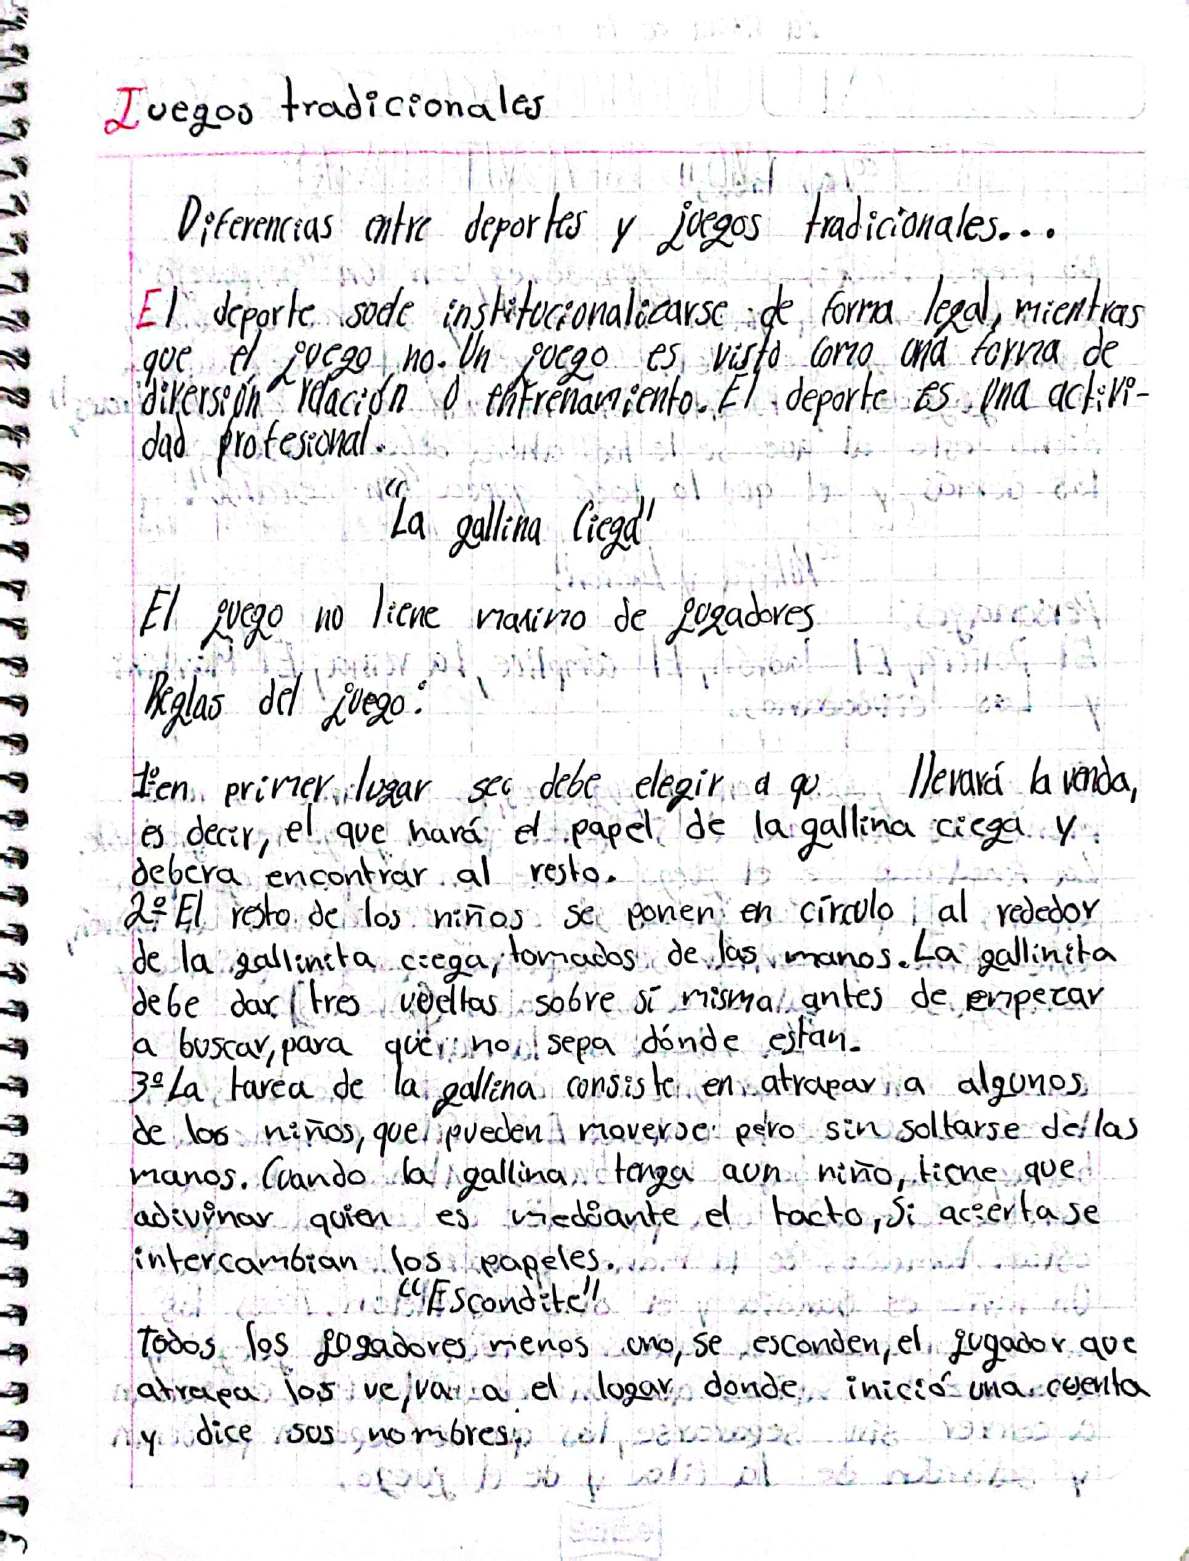 Juegos tradicionales
Diferencias entre deportes y juegos tradicionales...
El deporte soele institucionalicarse de forma legal, mientras
que el juego no. Un juego es visto como una forma de
diversión relación o entrenamiento. El deporte es una activi-
dad profesional.
"La gallina Ciega"
El juego no tiene maximo de jugadores
Reglas del juego:
1º en primer lugar se debe elegir a llevará la venda,
es decir, el que hará el papel de la gallina ciega y
debera encontrar al resto.
2º El resto de los niños se ponen en círculo al rededor
de la gallinita ciega, tomados de las manos. La gallinita
debe dar tres vueltas sobre sí misma antes de empezar
a buscar, para que no sepa dónde estan.
3º La tarea de la gallina consiste en atrapar a algunos
de los niños, que pueden moverse pero sin soltarse de las
manos. Cuando la gallina tenga aun niño, tiene que
adivinar quien es mediante el tacto, Si acierta se
intercambian los papeles.
"Escondite"
Todos los jugadores menos uno, se esconden, el jugador que
atrapa los ve, va a el lugar donde inició una cuenta
y dice sus nombres.